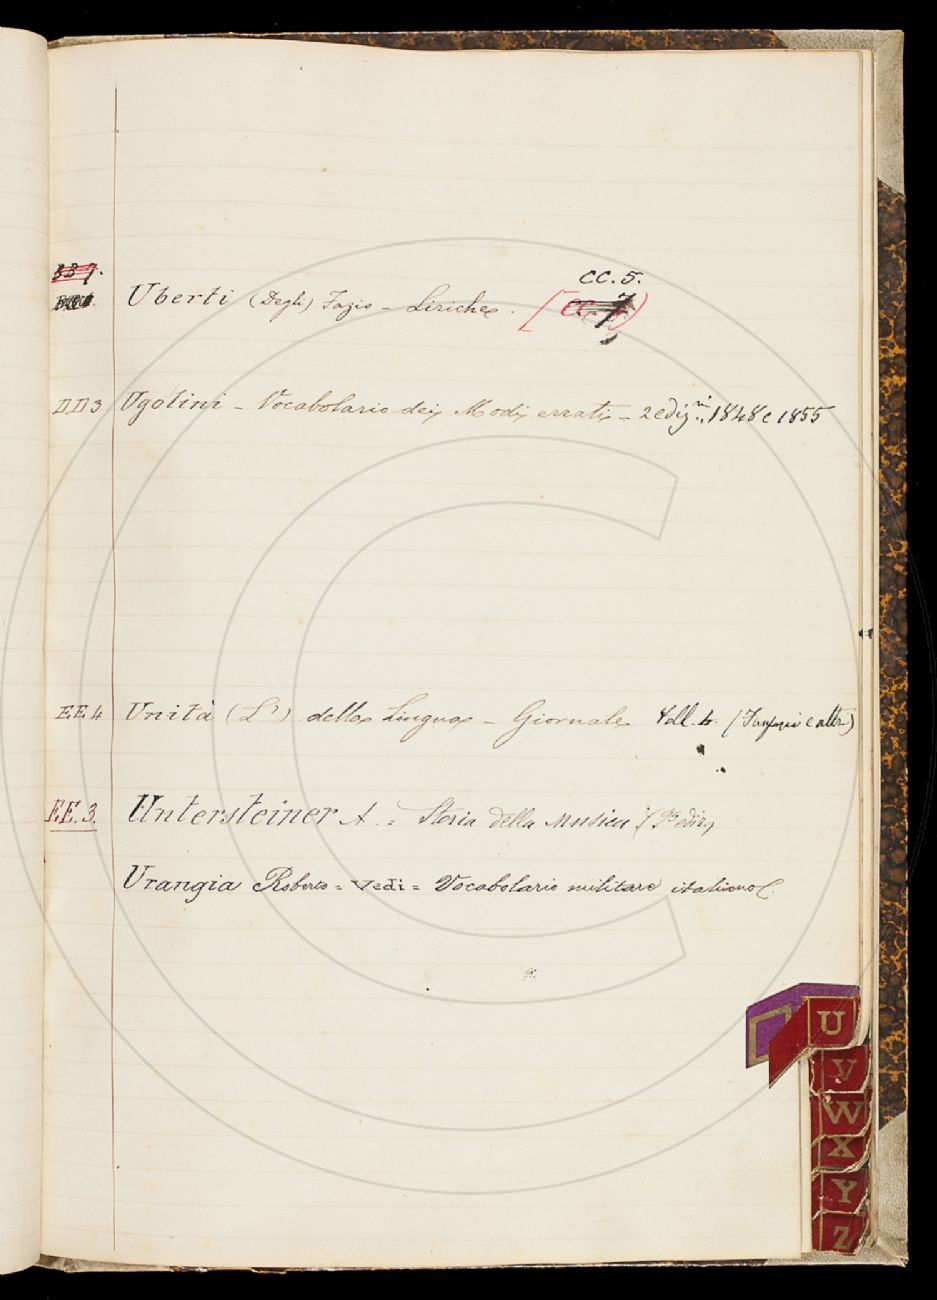 BB7.
CC. 5.
Uberti (Degli) Fazio - Liriche.
DD3 Ugolini - Vocabolario dei Modi errati - 2 ediz.ni 1848 e 1855
EE4 Unità (L') della Lingua - Giornale Voll. 4. (Fanfani e altri)
EE.3. Untersteiner A. = Storia della Musica (2a ediz)
Urangia Roberto = Vedi = Vocabolario militare italiano
U
V
W
X
Y
Z